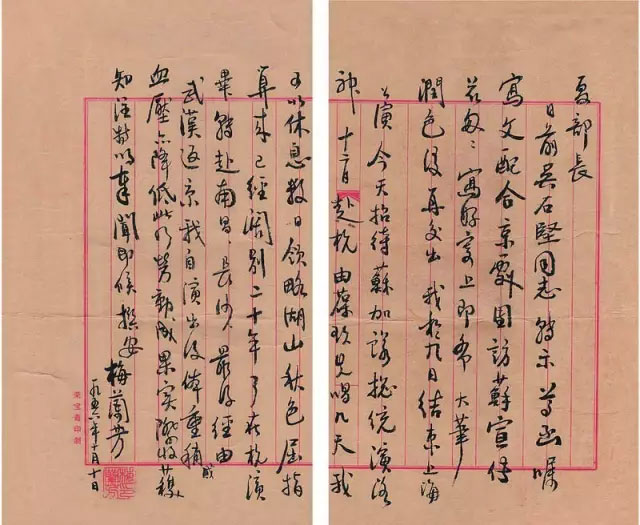 夏部長
日前吳石堅同志轉示尊函囑
寫文配合京劇團訪蘇宣傳
茲匆匆寫好寄上即希 大筆
潤色後再交出 我於九日結束上海
公演今天招待蘇加諾總統演洛
神 十二日赴杭由葆玖先唱几天我
可以休息數日領略湖山秋色屈指
算來已經闊別二十年了在杭演
畢轉赴南昌、長沙、最後經由
武漢返京我自演出後體重稍減
血壓亦降低此乃勞動成果實深收穫
知注特以奉聞即候 撰安
梅蘭芳
一九五六年十月十日
榮寶齋印製